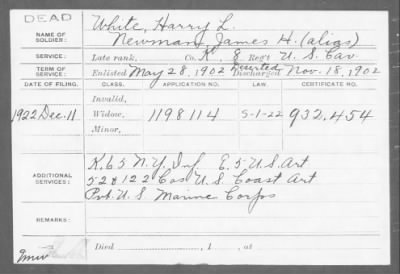 DEAD
NAME OF SOLDIER: White, Harry L.
Newman, James H. (alias)
SERVICE: Late rank, Co. K 8 Reg't U.S. Cav.
TERM OF SERVICE: Enlisted May 28, 1902 Deserted Discharged Nov. 18, 1902
DATE OF FILING. CLASS. APPLICATION NO. LAW. CERTIFICATE NO.
Invalid,
1922 Dec. 11 Widow, 1198114 5-1-22 932,454
Minor,
ADDITIONAL SERVICES: K. 65 N.Y. Inf E. 5 U.S. Art
52 & 122 Cos U.S. Coast Art
Pvt. U.S. Marine Corps
REMARKS:
Died , 1 , at